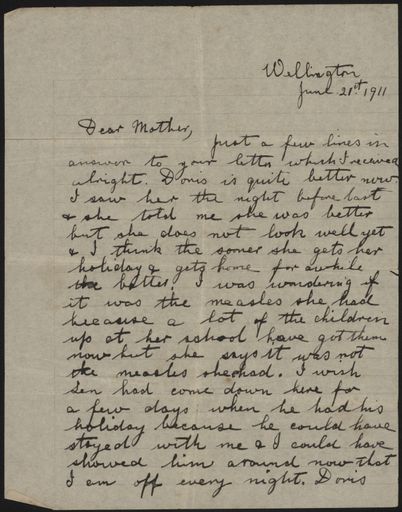 Wellington
June 21st 1911
Dear Mother,
Just a few lines in
answer to your letter which I received
alright. Doris is quite better now.
I saw her the night before last
& she told me she was better
but she does not look well yet
& I think the sooner she gets her
holiday & gets home for awhile
the better. I was wondering if
it was the measles she had
because a lot of the children
up at her school have got them
now but she says it was not
the measles she had. I wish
Len had come down here for
a few days when he had his
holiday because he could have
stayed with me & I could have
showed him around now that
I am off every night. Doris